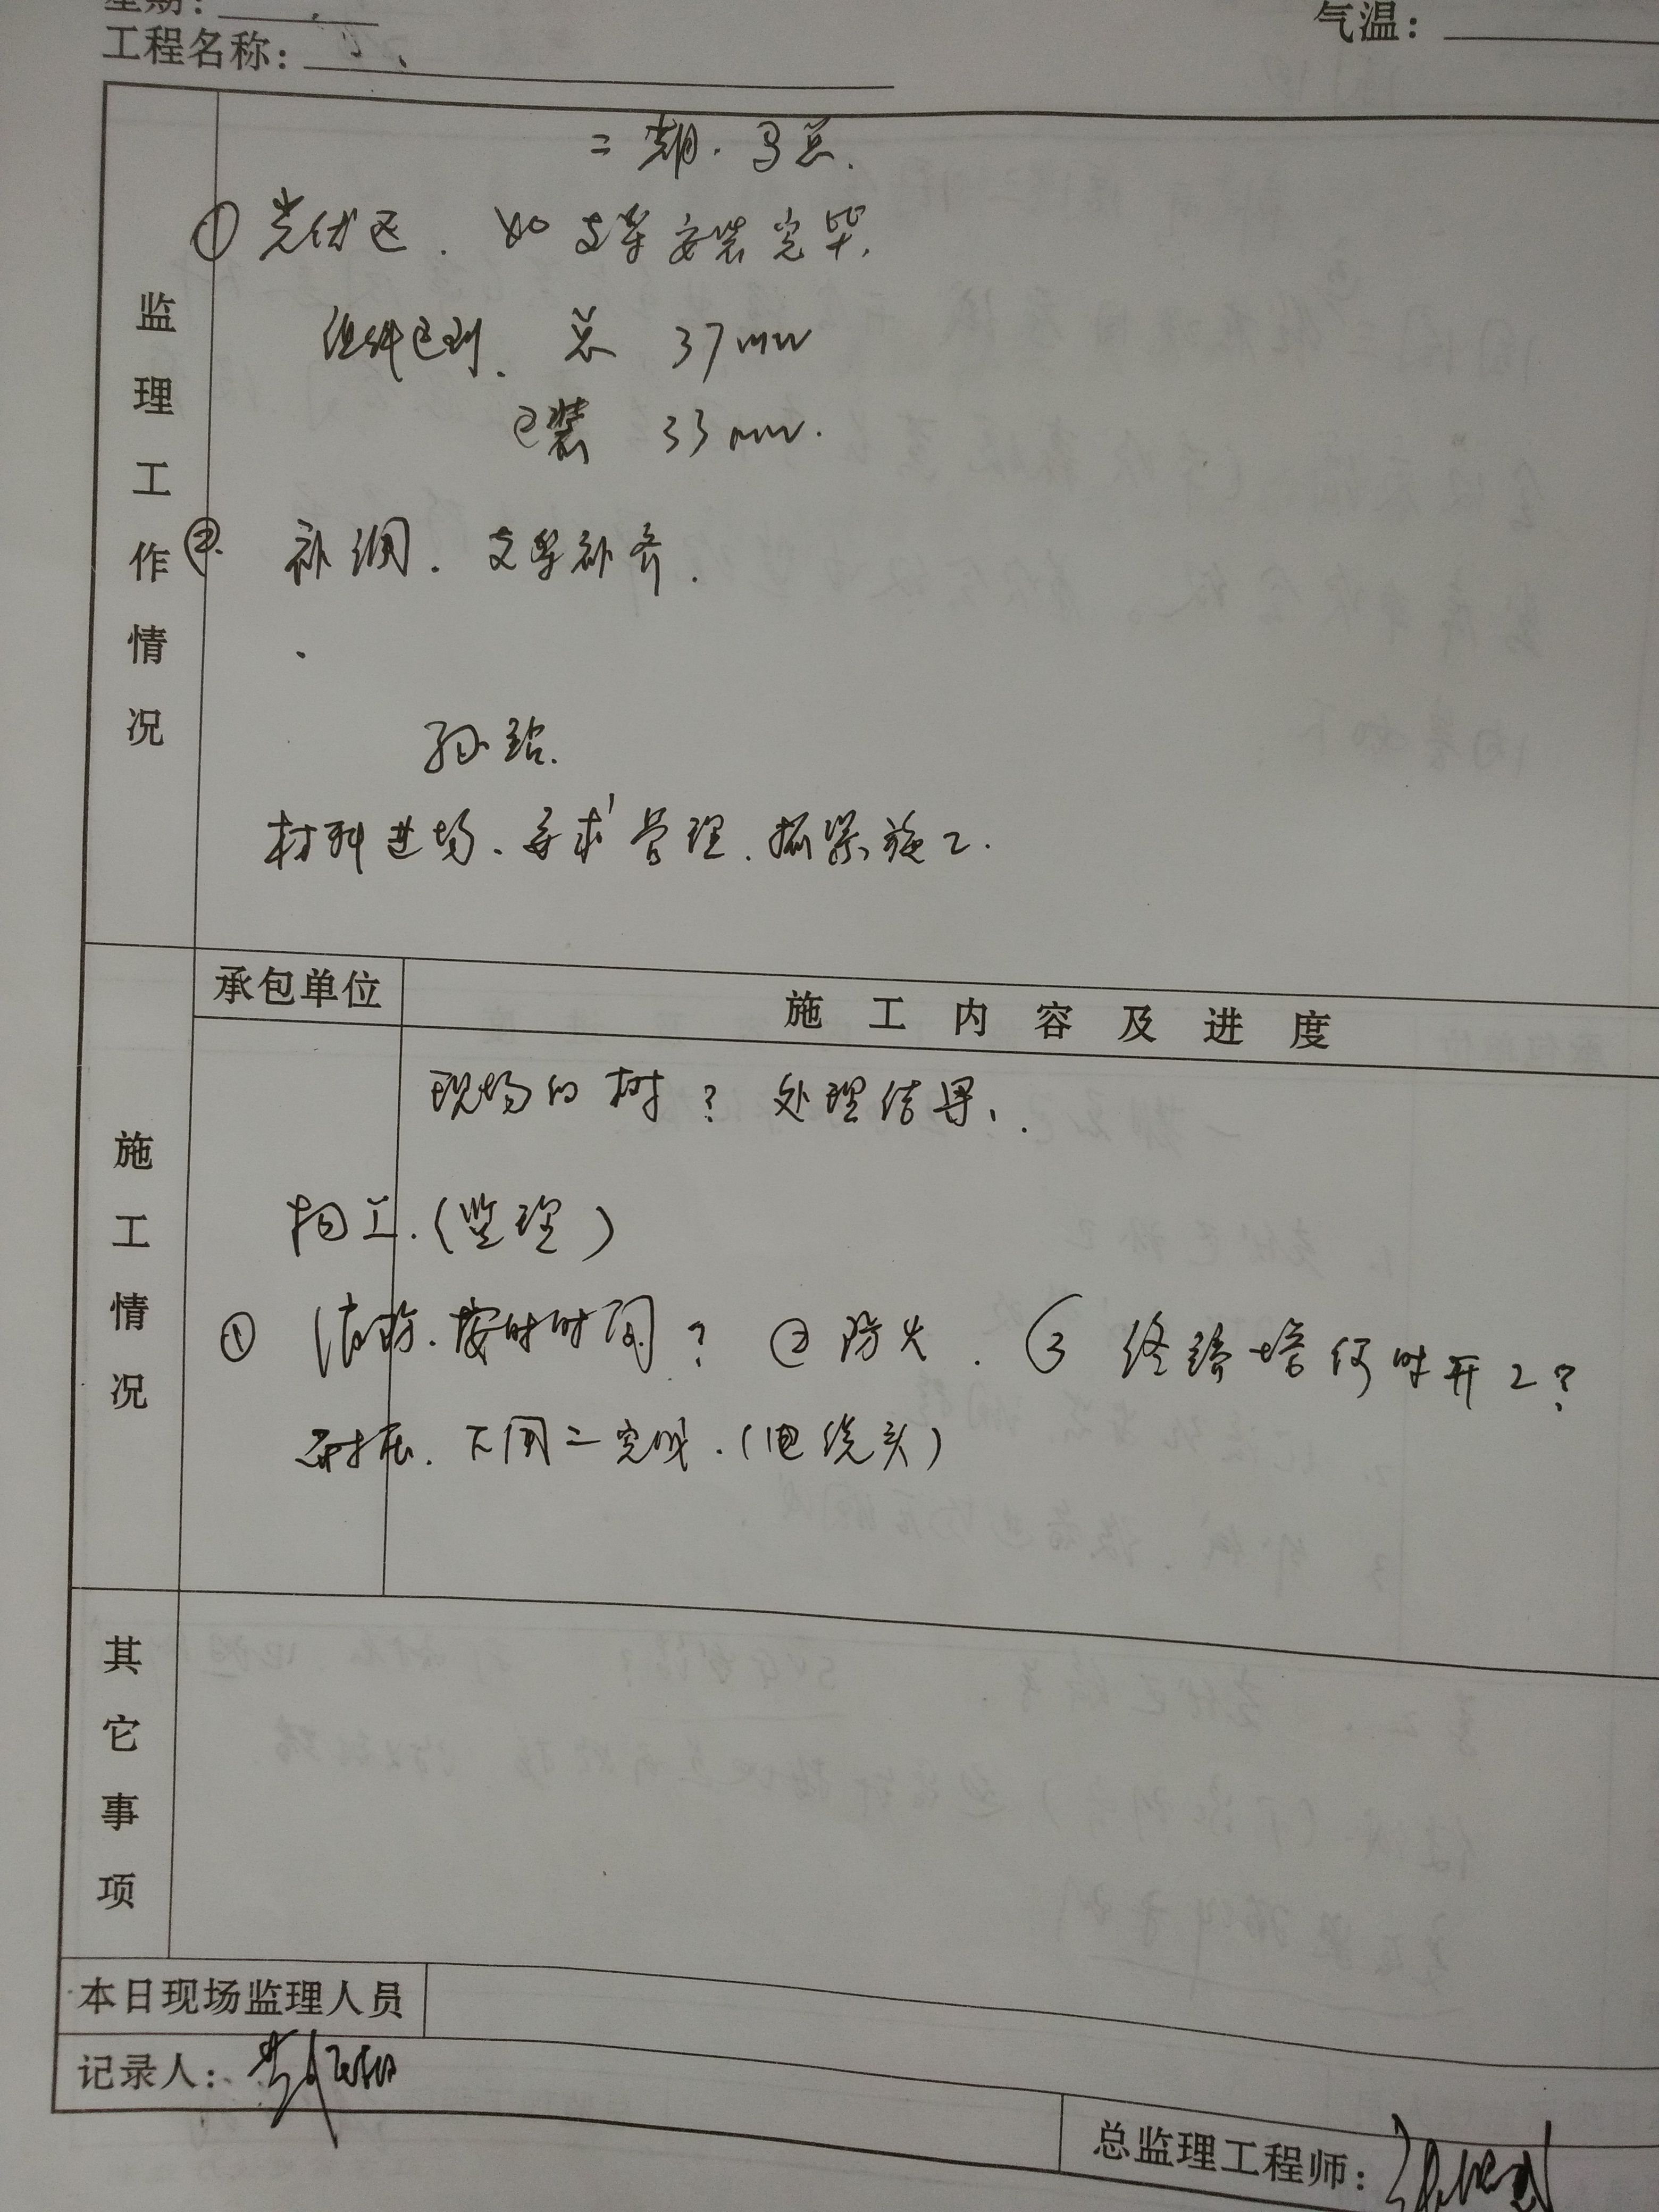 星期：
气温：
工程名称：
监理工作情况
二期. 马总.
① 光伏区. 如支架安装完毕,
组件已到. 总 37mw
已装 33mw.
②. 补漏. 支架补齐.
孙站.
材料进场. 寻求管理. 抓紧施工.
承包单位
施工内容及进度
施工情况
现场的树? 处理结果.
工.(监理)
① 消防. 按时时间? ② 防火. ③ 终端塔何时开工?
耐压. 下周二完成.(电缆头)
其它事项
本日现场监理人员
记录人：
总监理工程师：